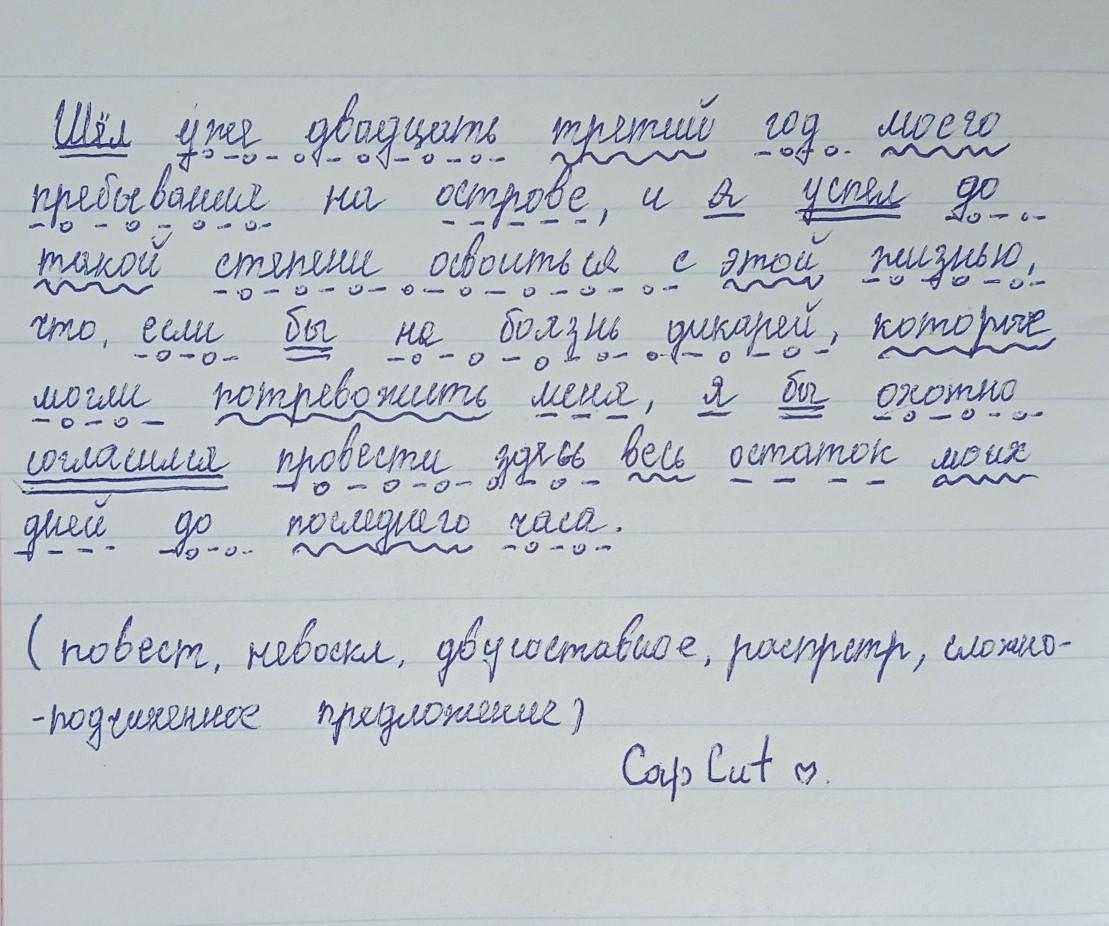 Шёл уже двадцать третий год моего
пребывания на острове, и я успел до
такой степени освоиться с этой жизнью,
что, если бы не боязнь дикарей, которые
могли потревожить меня, я бы охотно
согласился провести здесь весь остаток моих
дней до последнего часа.
(повест, невоскл, двусоставное, распрстр, сложно-
-подчиненное предложение)
CapCut ♡.